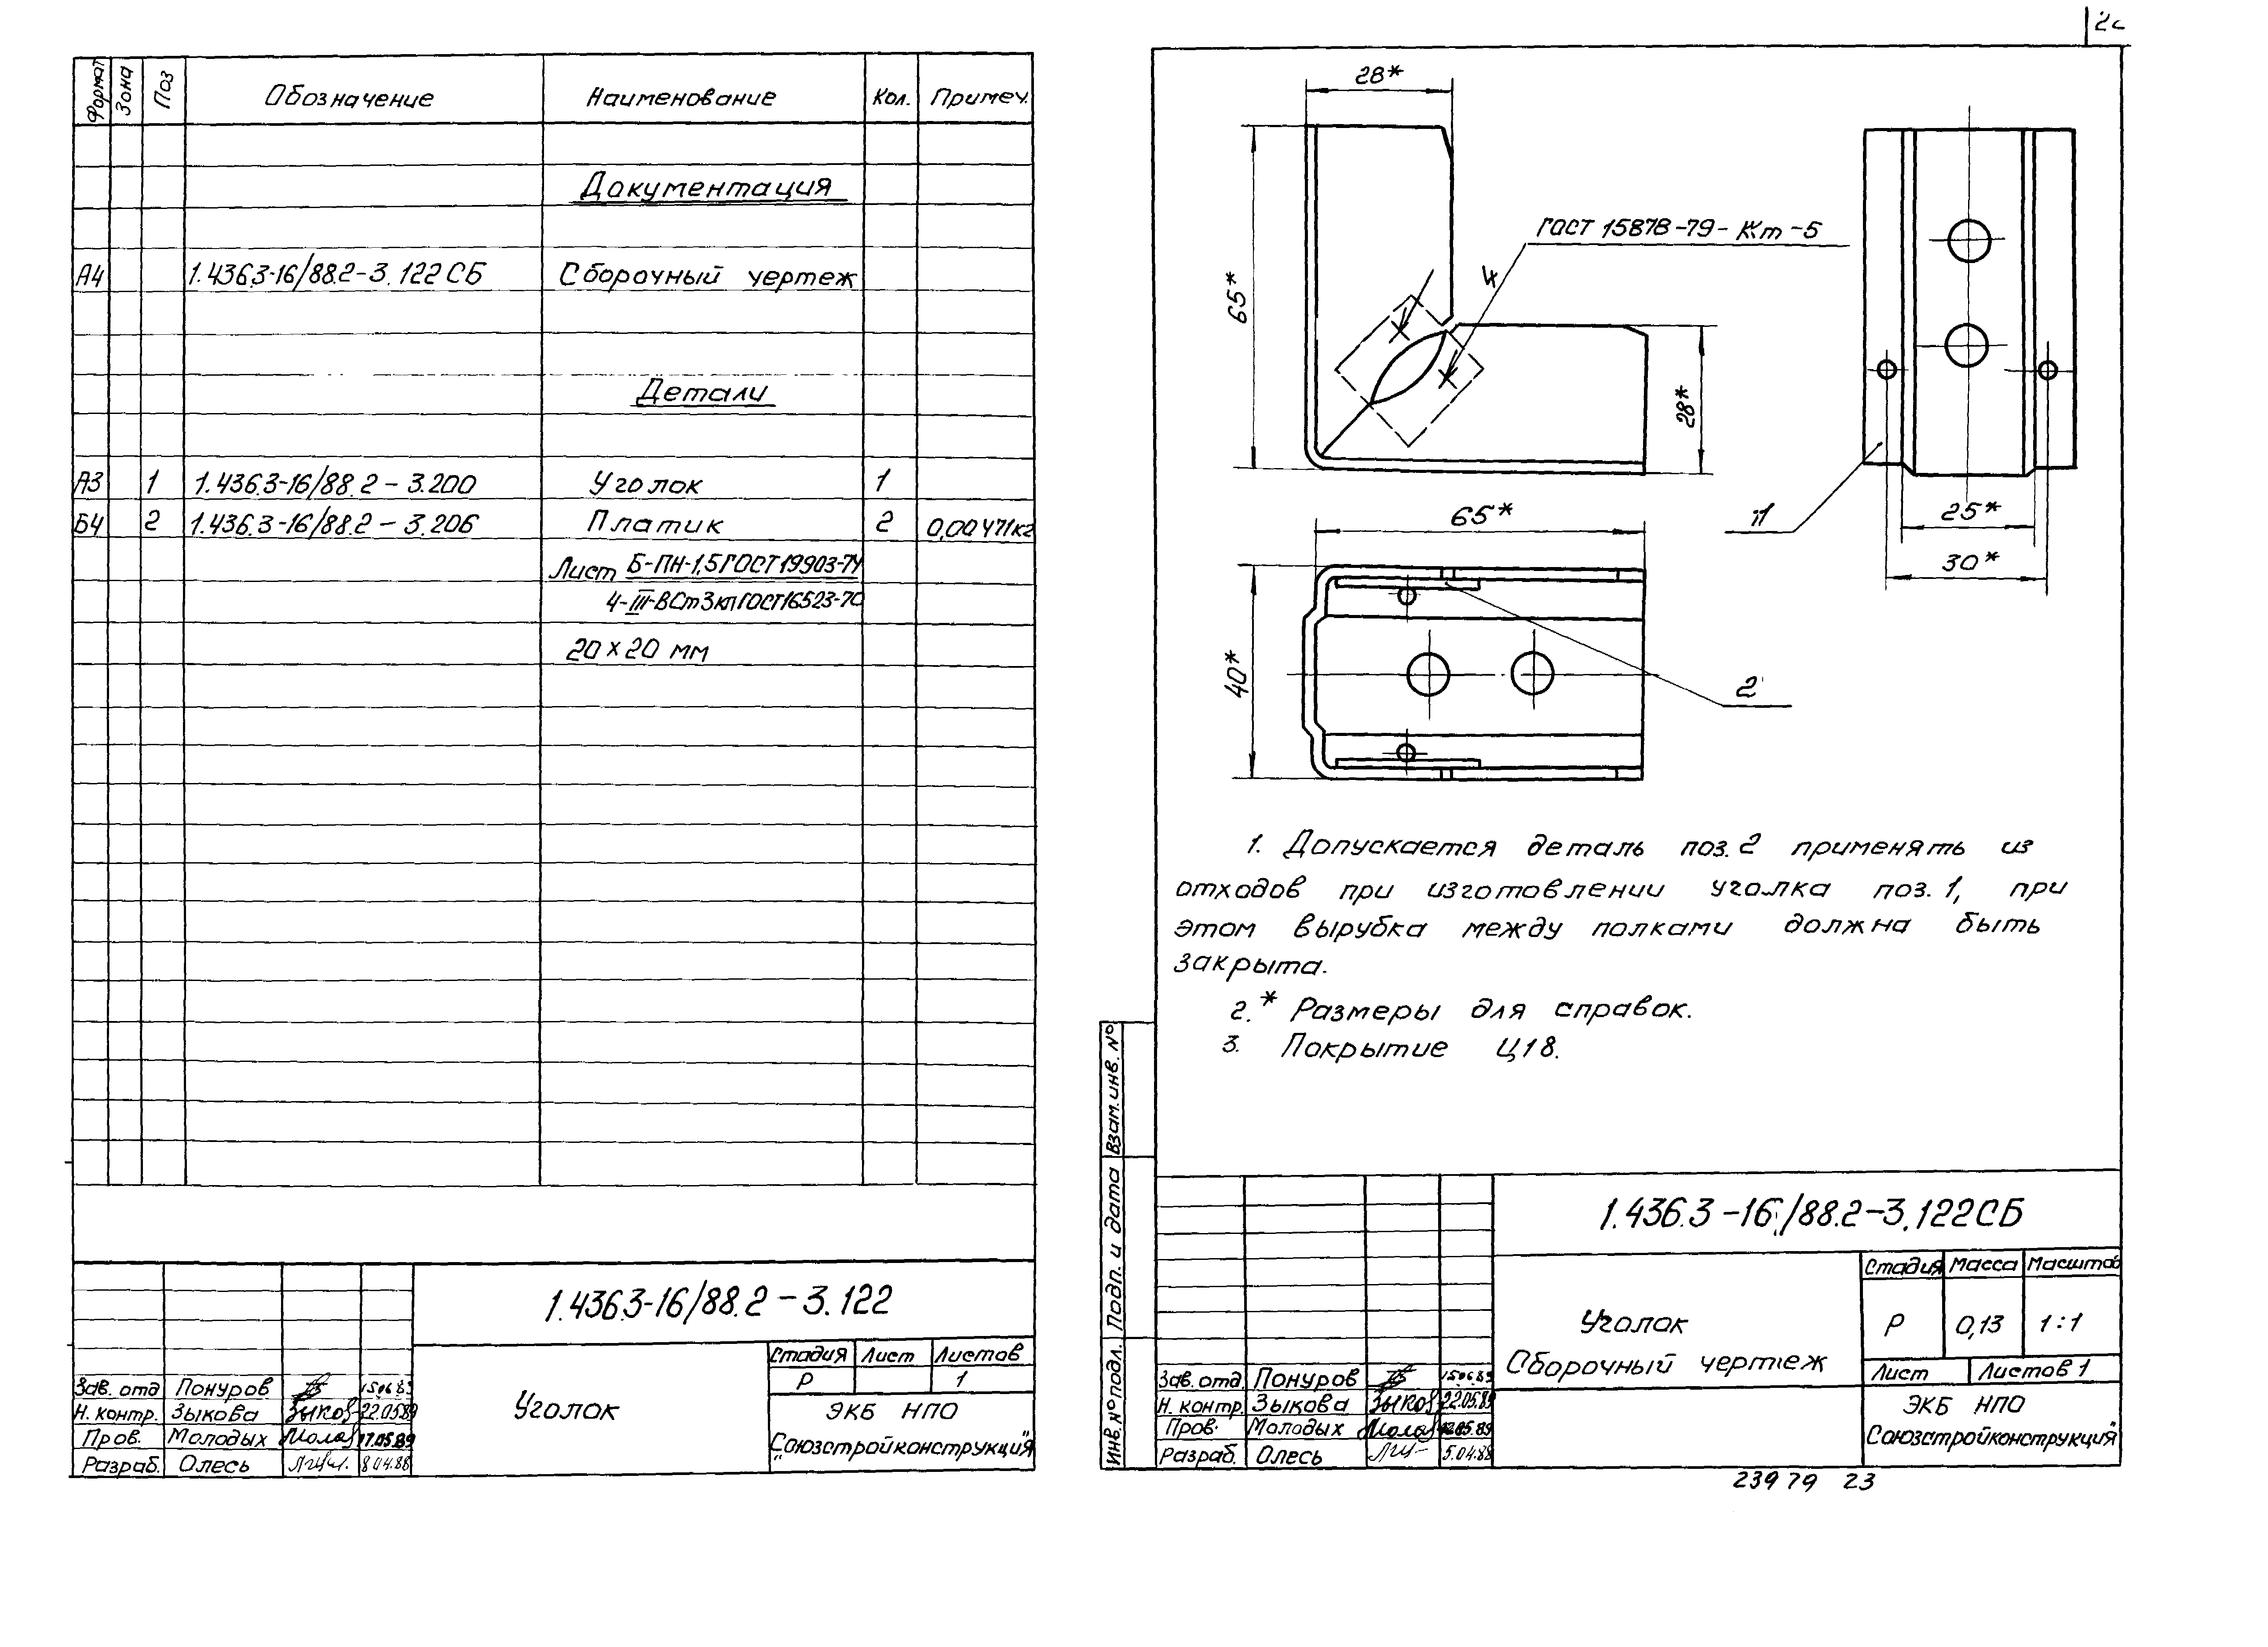 Формат Зона Поз Обозначение Наименование Кол. Примеч.
Документация
А4 1.436.3-16/88.2-3.122СБ Сборочный чертеж
Детали
А3 1 1.436.3-16/88.2-3.200 Уголок 1
Б4 2 1.436.3-16/88.2-3.206 Платик 2 0,00471кг
Лист Б-ПН-1,5 ГОСТ 19903-74
4-III-ВСт3кп ГОСТ 16523-70
20×20 мм
1.436.3-16/88.2-3.122
Уголок
Стадия Лист Листов
Р 1
ЭКБ НПО
"Союзстройконструкция"
Зав. отд Понуров 15.06.89
Н. контр. Зыкова 22.05.89
Пров. Молодых 17.05.89
Разраб. Олесь 8.04.88
28*
65*
ГОСТ 15878-79-Кт-5
4
28*
1
25*
30*
65*
40*
2
1. Допускается деталь поз. 2 применять из
отходов при изготовлении уголка поз. 1, при
этом вырубка между полками должна быть
закрыта.
2.* Размеры для справок.
3. Покрытие Ц18.
Взам. инв. №
Подп. и дата
Инв. № подл.
1.436.3-16/88.2-3.122СБ
Уголок
Сборочный чертеж
Стадия Масса Масштаб
Р 0,13 1:1
Лист Листов 1
ЭКБ НПО
"Союзстройконструкция"
Зав. отд. Понуров 15.06.89
Н. контр. Зыкова 22.05.89
Пров. Молодых
Разраб. Олесь 5.04.88
23979 23